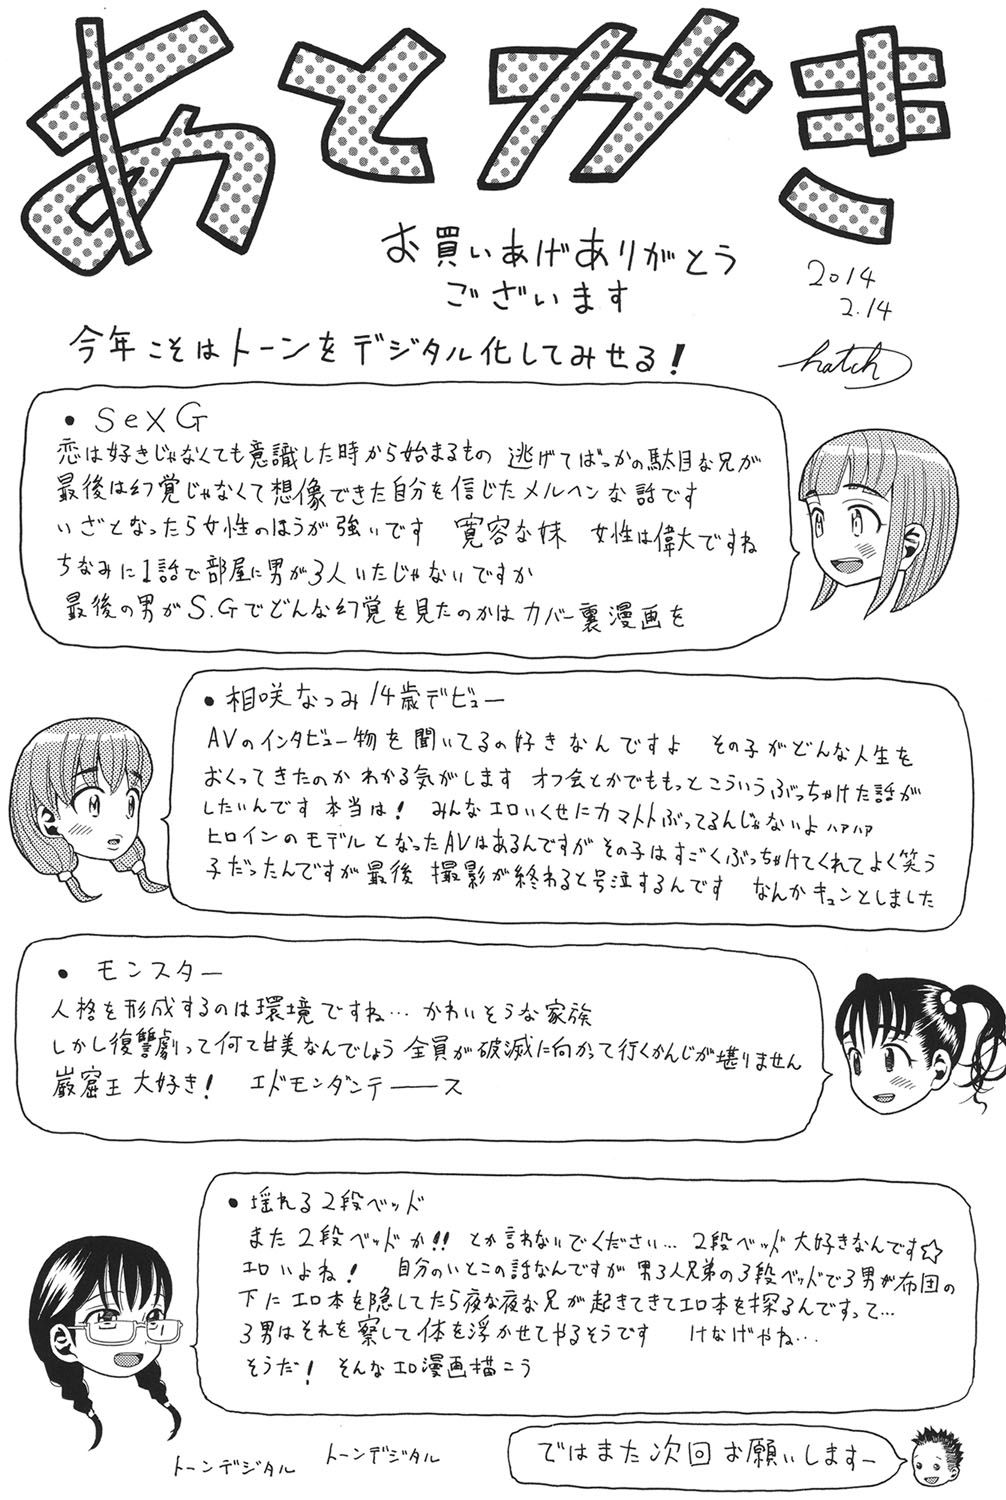 あとがき
お買いあげありがとう
ございます
2014
2.14
hatch
今年こそはトーンをデジタル化してみせる!
• SeXG
恋は好きじゃなくても意識した時から始まるもの 逃げてばっかの駄目な兄が
最後は幻覚じゃなくて想像できた自分を信じたメルヘンな話です
いざとなったら女性のほうが強いです 寛容な妹 女性は偉大ですね
ちなみに1話で部屋に男が3人いたじゃないですか
最後の男がS.Gでどんな幻覚を見たのかはカバー裏漫画を
• 相咲なつみ14歳デビュー
AVのインタビュー物を聞いてるの好きなんですよ その子がどんな人生を
おくってきたのかわかる気がします オフ会とかでももっとこういうぶっちゃけた話が
したいんです 本当は! みんなエロいくせにカマトトぶってるんじゃないよ ハァハァ
ヒロインのモデルとなったAVはあるんですが その子はすごくぶっちゃけてくれてよく笑う
子だったんですが最後 撮影が終わると号泣するんです なんかキュンとしました
• モンスター
人格を形成するのは環境ですね… かわいそうな家族
しかし復讐劇って何て甘美なんでしょう 全員が破滅に向かって行くかんじが堪りません
巌窟王大好き! エドモンダンテーース
• 揺れる2段ベッド
また2段ベッドか!! とか言わないでください… 2段ベッド大好きなんです☆
エロいよね! 自分のいとこの話なんですが 男3人兄弟の3段ベッドで3男が布団の
下にエロ本を隠してたら夜な夜な兄が起きてきてエロ本を探るんですって…
3男はそれを察して体を浮かせてやるそうです けなげやね…
そうだ! そんなエロ漫画描こう
トーンデジタル
トーンデジタル
ではまた次回お願いしますー